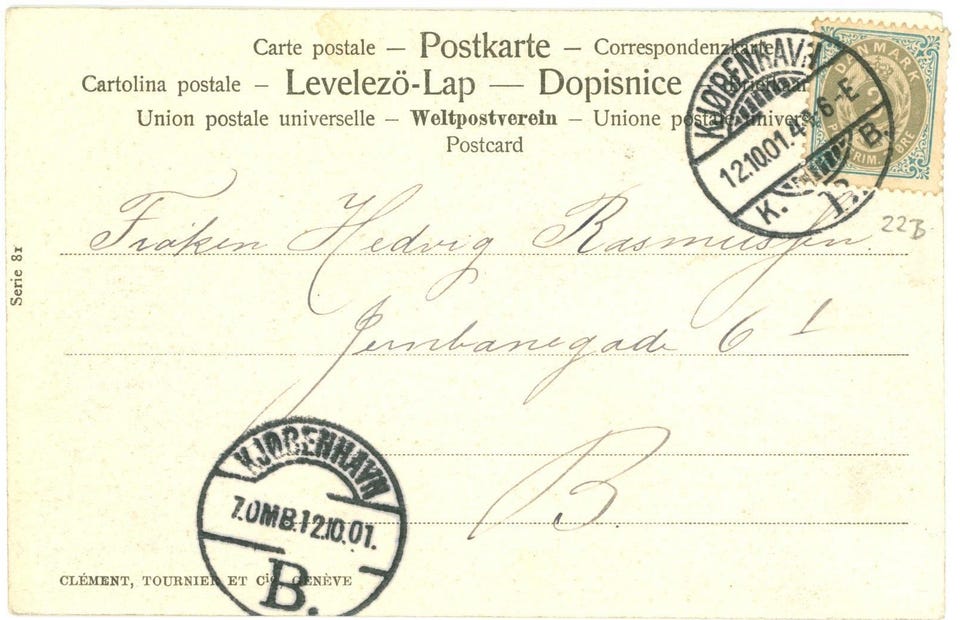 Carte postale – Postkarte – Correspondenzkarte
Cartolina postale – Levelezö-Lap — Dopisnice – Briefkaart
Union postale universelle – Weltpostverein – Unione postale universale
Postcard
KJØBENHAVN
12.10.01. 4-6 E
K. B.
DANMARK
ØRE
Frøken Hedvig Rasmussen.
22B
Serie 81
Jernbanegade 6 1
B.
KJØBENHAVN
7.OMB.12.10.01.
B.
CLÉMENT, TOURNIER ET Cie, GENÈVE